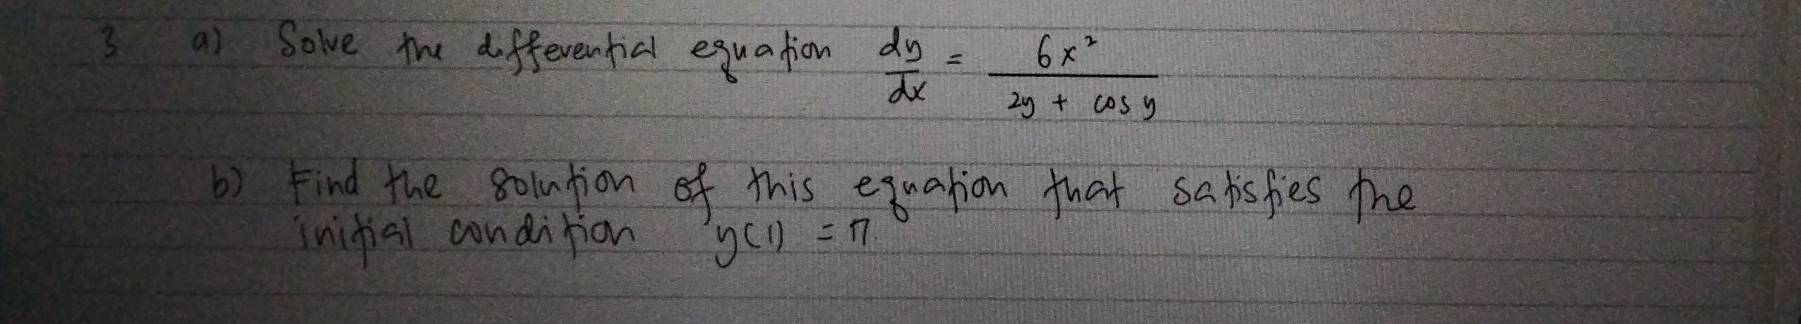 3 a) Solve the differential equation dy/dx = 6x²/(2y + cos y)
b) Find the solution of this equation that satisfies the
initial condition y(1) = π.